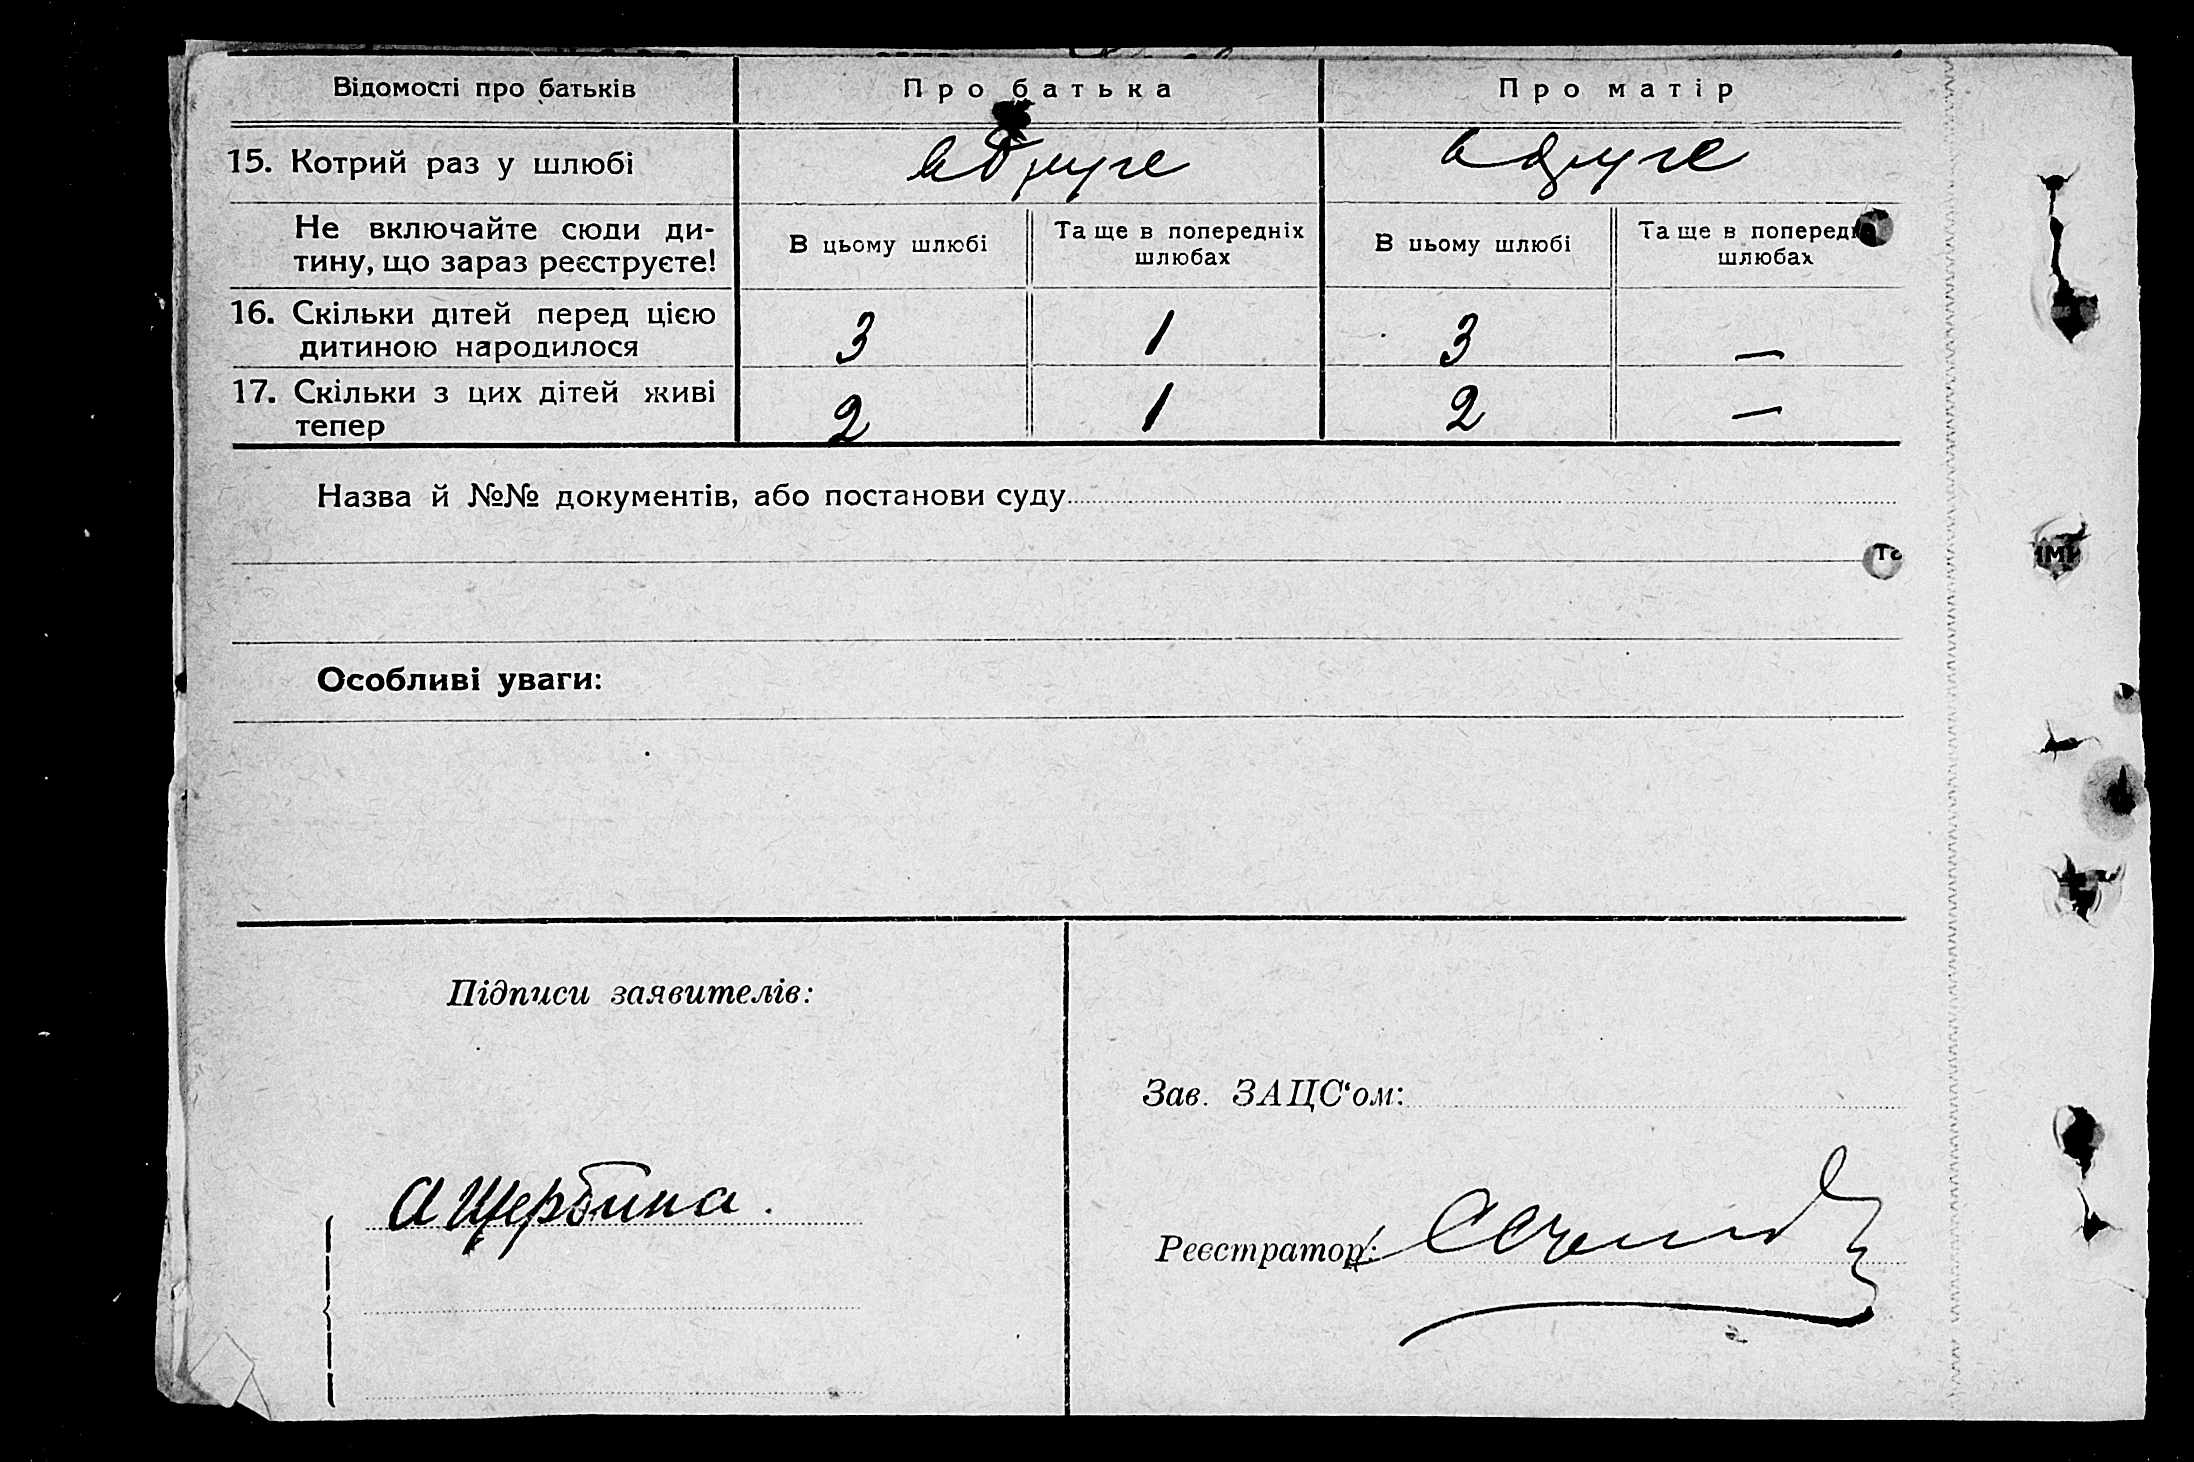 Відомості про батьків Про батька Про матір
15. Котрий раз у шлюбі вдруге вдруге
Не включайте сюди ди-
тину, що зараз реєструєте!
В цьому шлюбі
Та ще в попередніх
шлюбах
В цьому шлюбі
Та ще в поперед
шлюбах
16. Скільки дітей перед цією
дитиною народилося
3 1 3 —
17. Скільки з цих дітей живі
тепер
2 1 2 —
Назва й №№ документів, або постанови суду
Особливі уваги:
Підписи заявителів:
А Щербина.
Зав. ЗАЦС'ом:
Реєстратор: